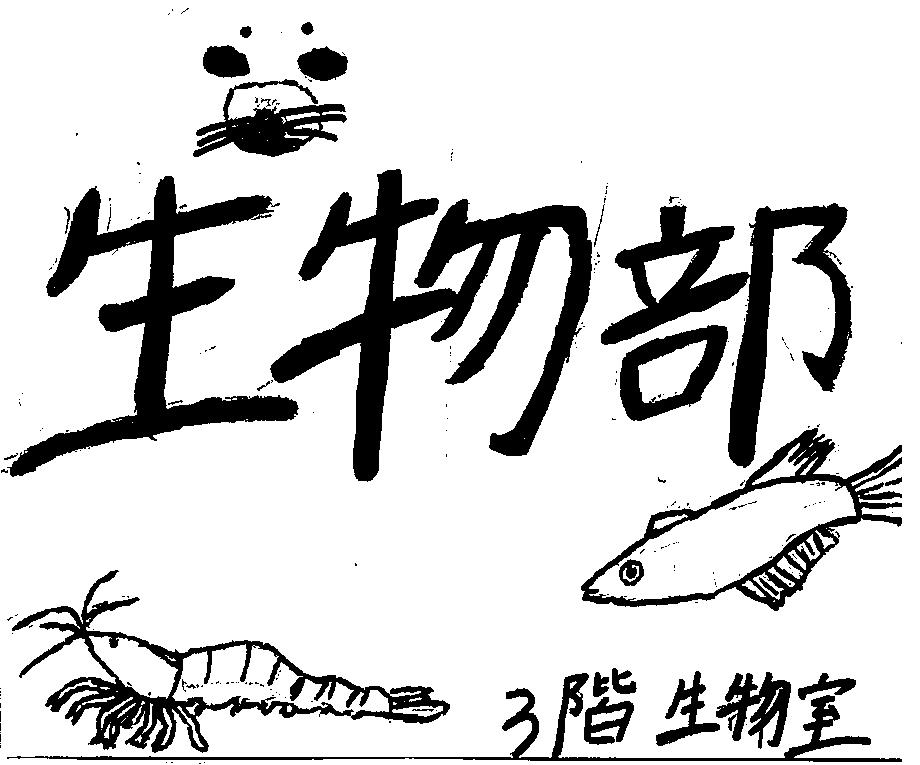 生物部
3階 生物室